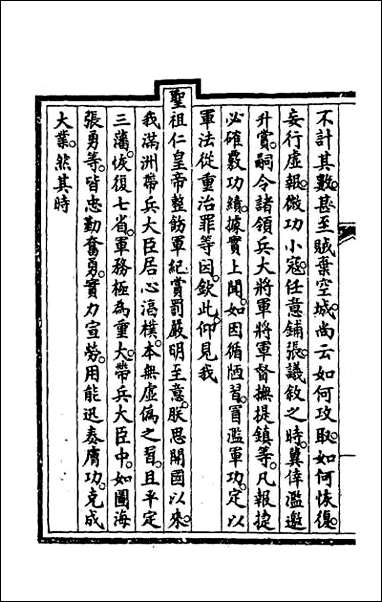 不計其數。甚至賊棄空城。尚云如何攻取。如何恢復。
妄行虛報。微功小寇。任意鋪張。議敘之時。冀倖濫邀
升賞。嗣令諸領兵大將軍將軍督撫提鎮等。凡報捷
必確覈功績。據實上聞。如因循陋習。冒濫軍功。定以
軍法從重治罪等因。欽此。仰見我
聖祖仁皇帝整飭軍紀賞罰嚴明至意。朕思開國以來。
我滿洲帶兵大臣居心淳樸。本無虛偽之習。且平定
三藩。恢復七省。軍務極為重大。帶兵大臣中。如圖海
張勇等。皆忠勤奮勇。實力宣勞。用能迅奏膚功。克成
大業。然其時